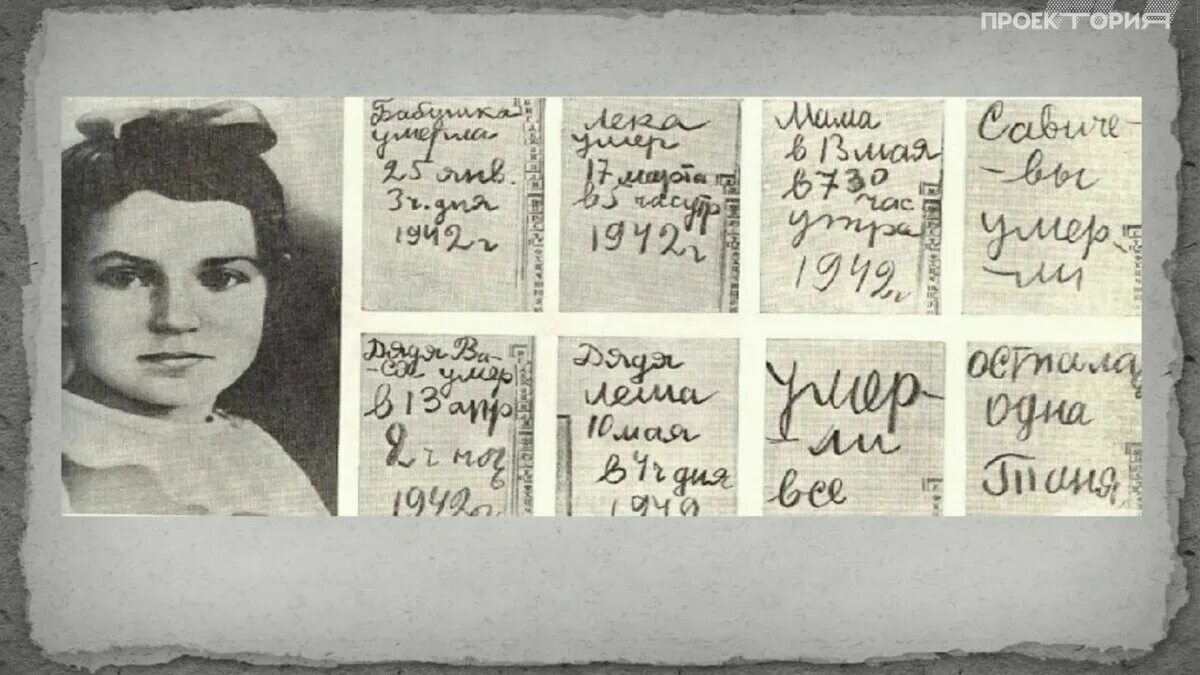 ПРОЕКТОРИЯ
Бабушка
умерла
25 янв.
3ч. дня
1942г
Лека
умер
17 марта
в5 часутр
1942г
Мама
в 13 мая
в730
час
утра
1942г
Савиче-
-вы
умер-
-ли
Дядя Ва-
-ся умер
в 13 апр
2ч ноч
1942г
Дядя
Леша
10 мая
в 4ч дня
1942
Умер-
-ли
все
Осталаь
одна
Таня